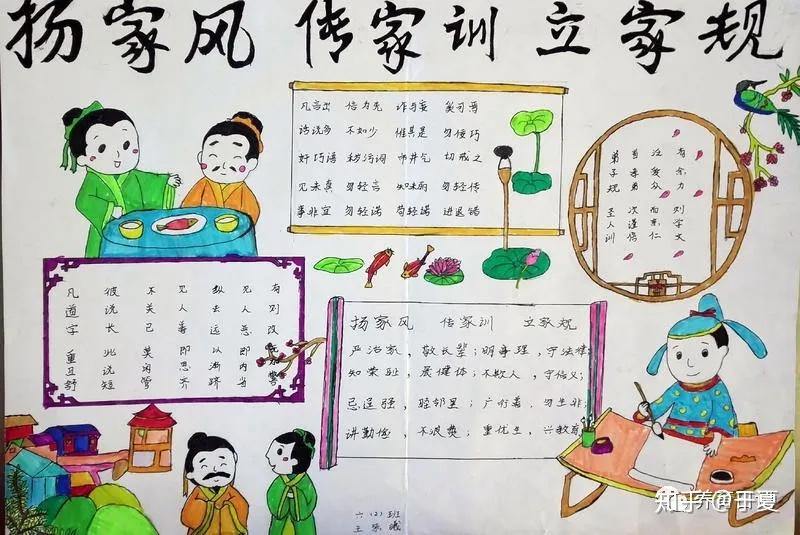 扬家风 传家训 立家规
凡言出 信为先 诈与妄 奚可焉
话说多 不如少 惟其是 勿佞巧
奸巧语 秽污词 市井气 切戒之
见未真 勿轻言 知未的 勿轻传
事非宜 勿轻诺 苟轻诺 进退错
弟子规 圣人训
首孝弟 次谨信
泛爱众 而亲仁
有余力 则学文
凡道字 重且舒
彼说长 此说短
不关己 莫闲管
见人善 即思齐
纵去远 以渐跻
见人恶 即内省
有则改 无加警
扬家风 传家训 立家规
严治家，敬长辈；明事理，守法律；
知荣耻，展健体；不欺人，守信义；
忌逞强，睦邻里；广行善，勿生非；
讲勤俭，不浪费；重优生，兴教育
六(2)班